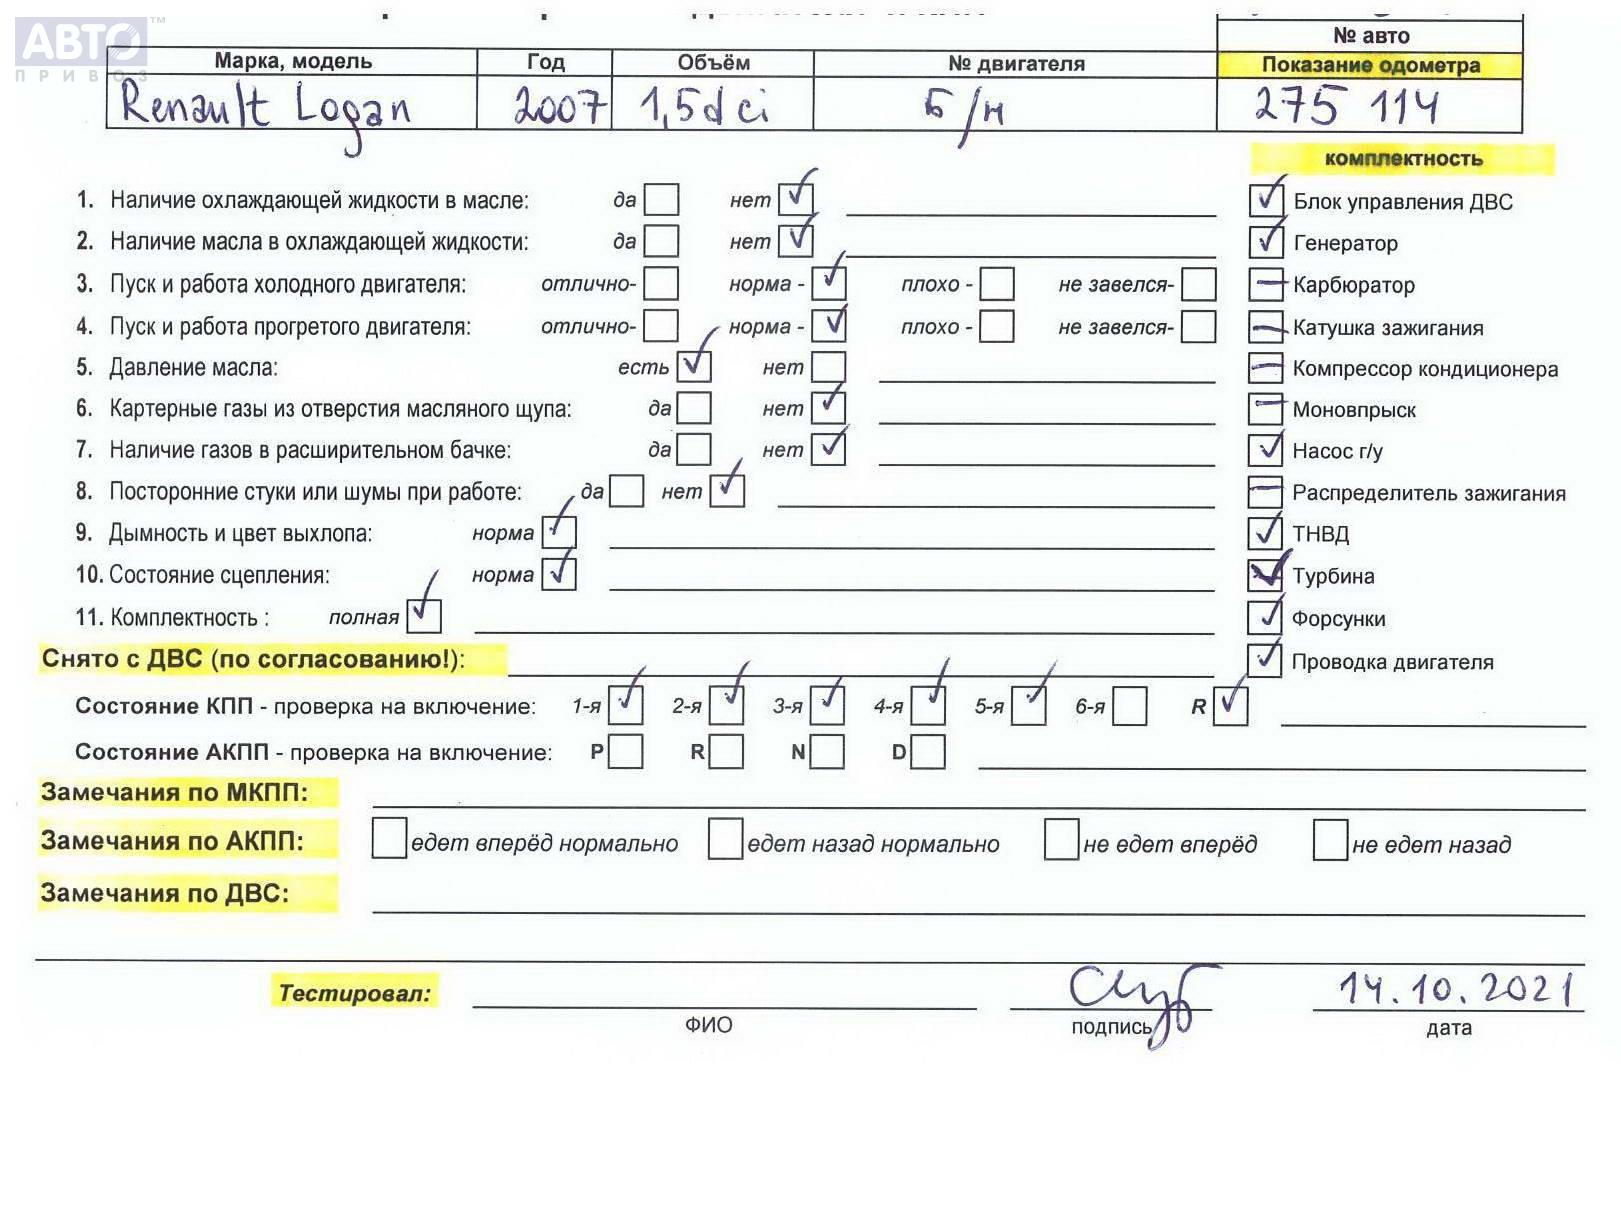 АВТО™
ПРИВОЗ
№ авто
Марка, модель Год Объём № двигателя Показание одометра
Renault Logan 2007 1,5dci Б/н 275 114
комплектность
1. Наличие охлаждающей жидкости в масле: да нет Блок управления ДВС
2. Наличие масла в охлаждающей жидкости: да нет Генератор
3. Пуск и работа холодного двигателя: отлично- норма - плохо - не завелся- Карбюратор
4. Пуск и работа прогретого двигателя: отлично- норма - плохо - не завелся- Катушка зажигания
5. Давление масла: есть нет Компрессор кондиционера
6. Картерные газы из отверстия масляного щупа: да нет Моновпрыск
7. Наличие газов в расширительном бачке: да нет Насос г/у
8. Посторонние стуки или шумы при работе: да нет Распределитель зажигания
9. Дымность и цвет выхлопа: норма ТНВД
10. Состояние сцепления: норма Турбина
11. Комплектность : полная Форсунки
Снято с ДВС (по согласованию!): Проводка двигателя
Состояние КПП - проверка на включение: 1-я 2-я 3-я 4-я 5-я 6-я R
Состояние АКПП - проверка на включение: P R N D
Замечания по МКПП:
Замечания по АКПП: едет вперёд нормально едет назад нормально не едет вперёд не едет назад
Замечания по ДВС:
Тестировал: 14.10.2021
ФИО подпись дата